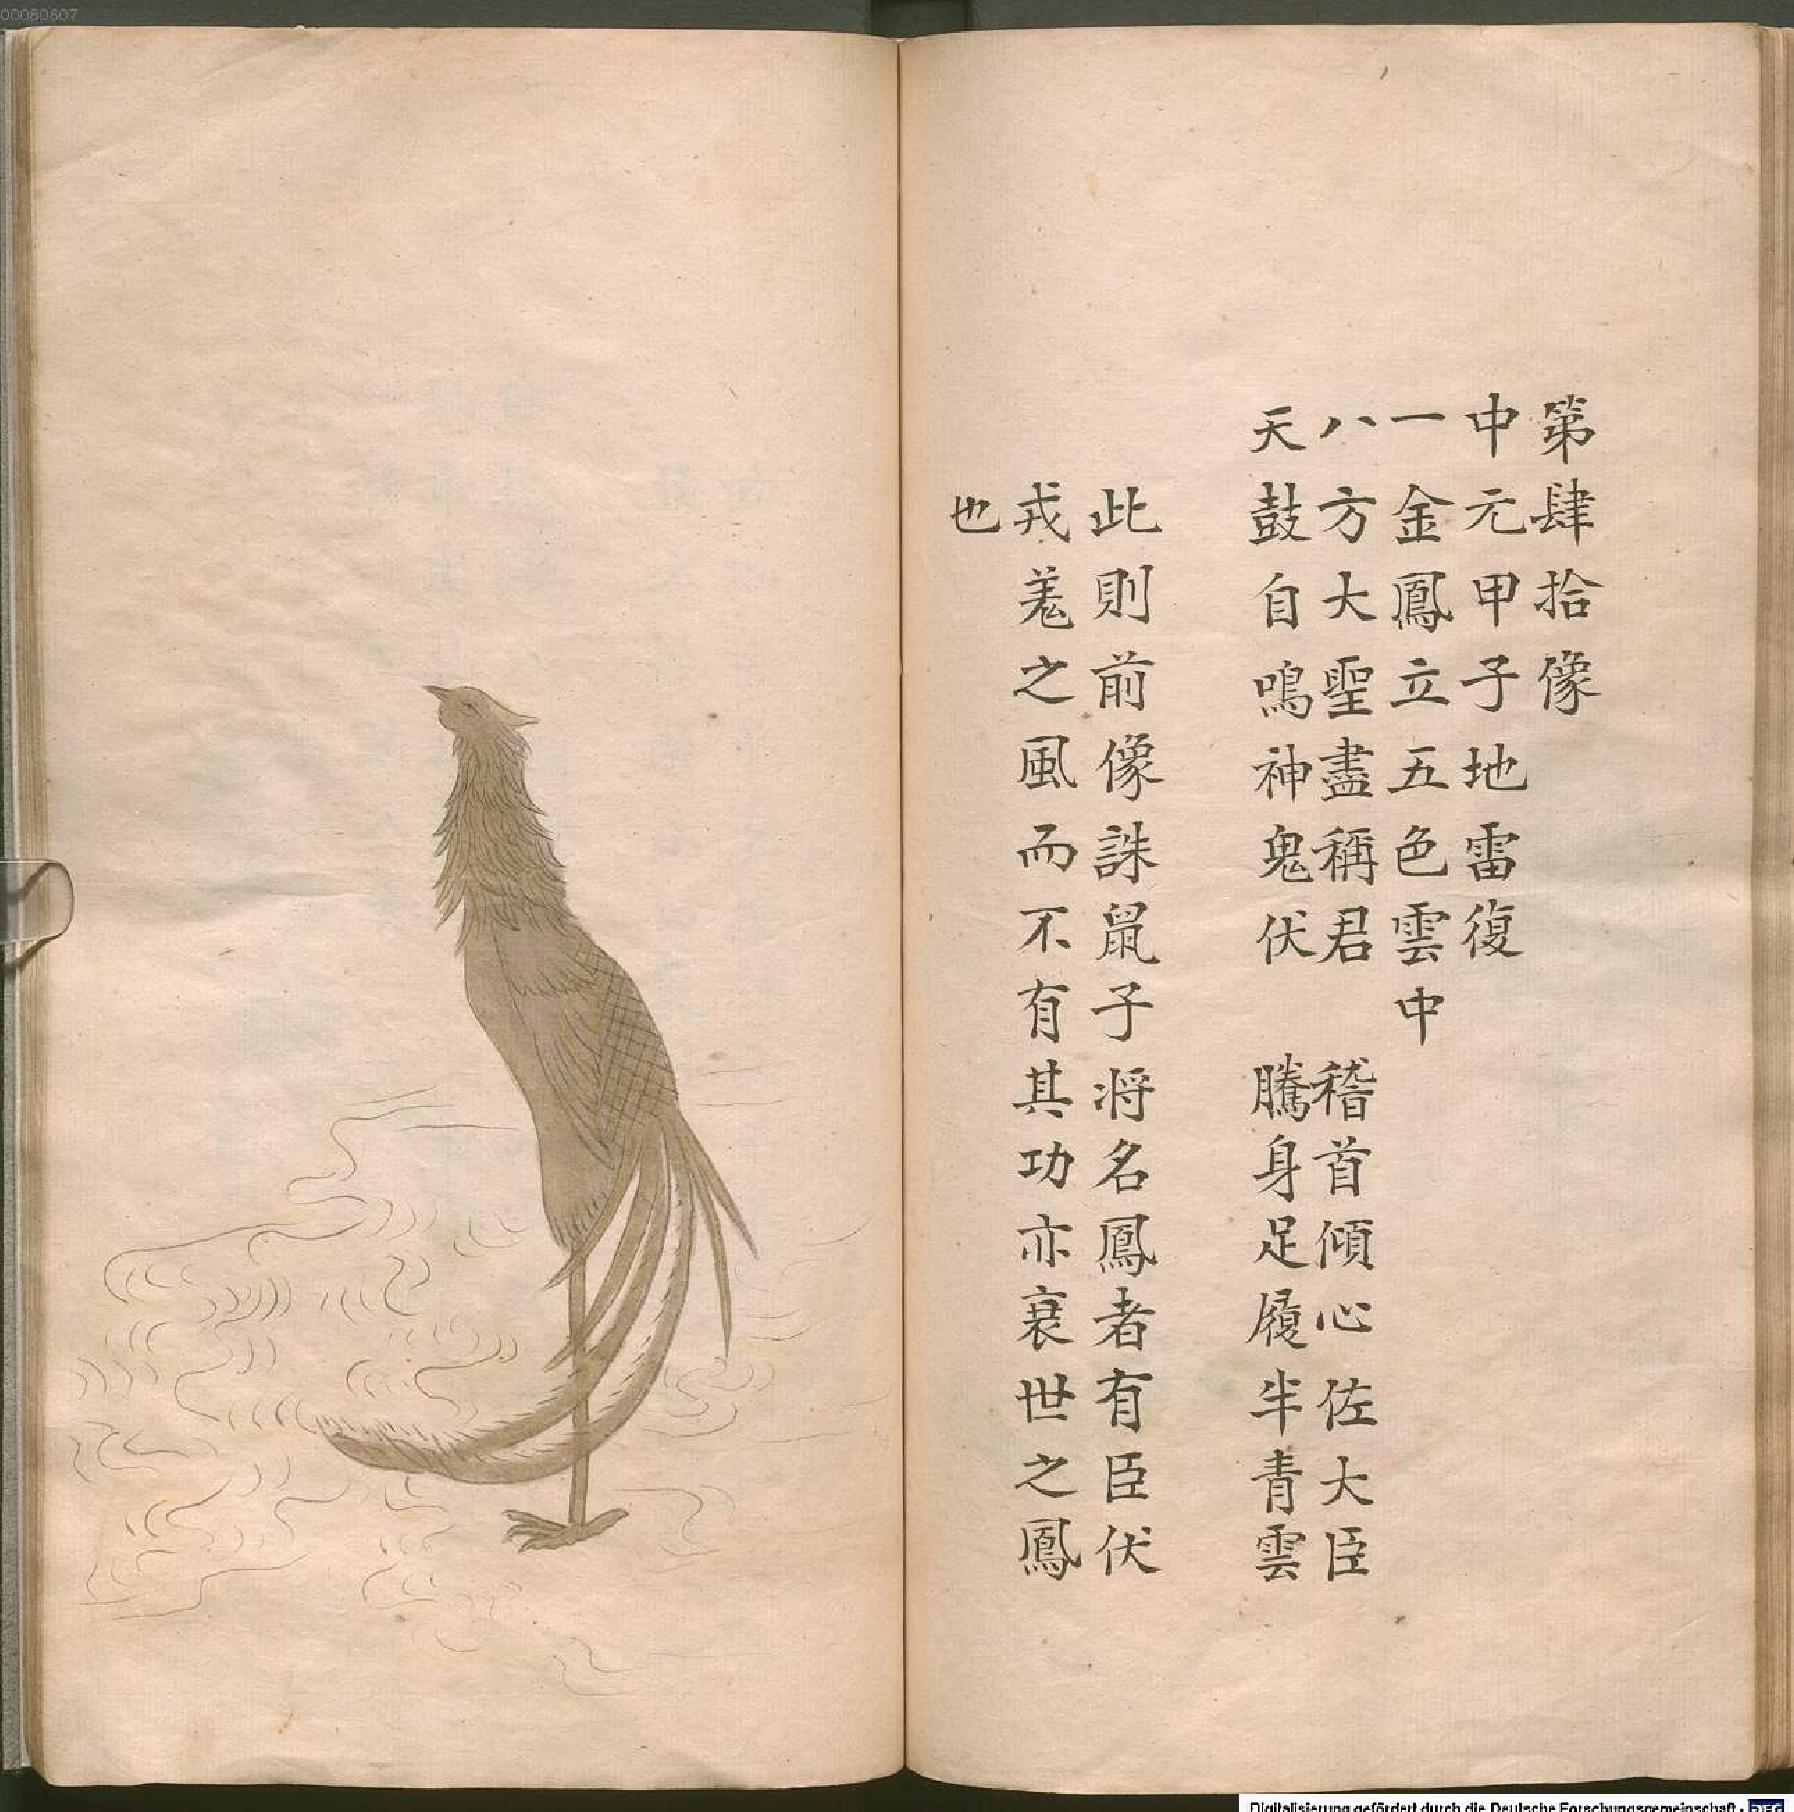 00080607
第肆拾像
中元甲子地雷復
一金鳳立五色雲中
八方大聖盡稱君　稽首傾心佐大臣
天鼓自鳴神鬼伏　騰身足履半青雲
此則前像誅鼠子将名鳳者有臣伏
戎羗之風而不有其功亦衰世之鳳
也
Digitalisierung gefördert durch die Deutsche Forschungsgemeinschaft - DFG